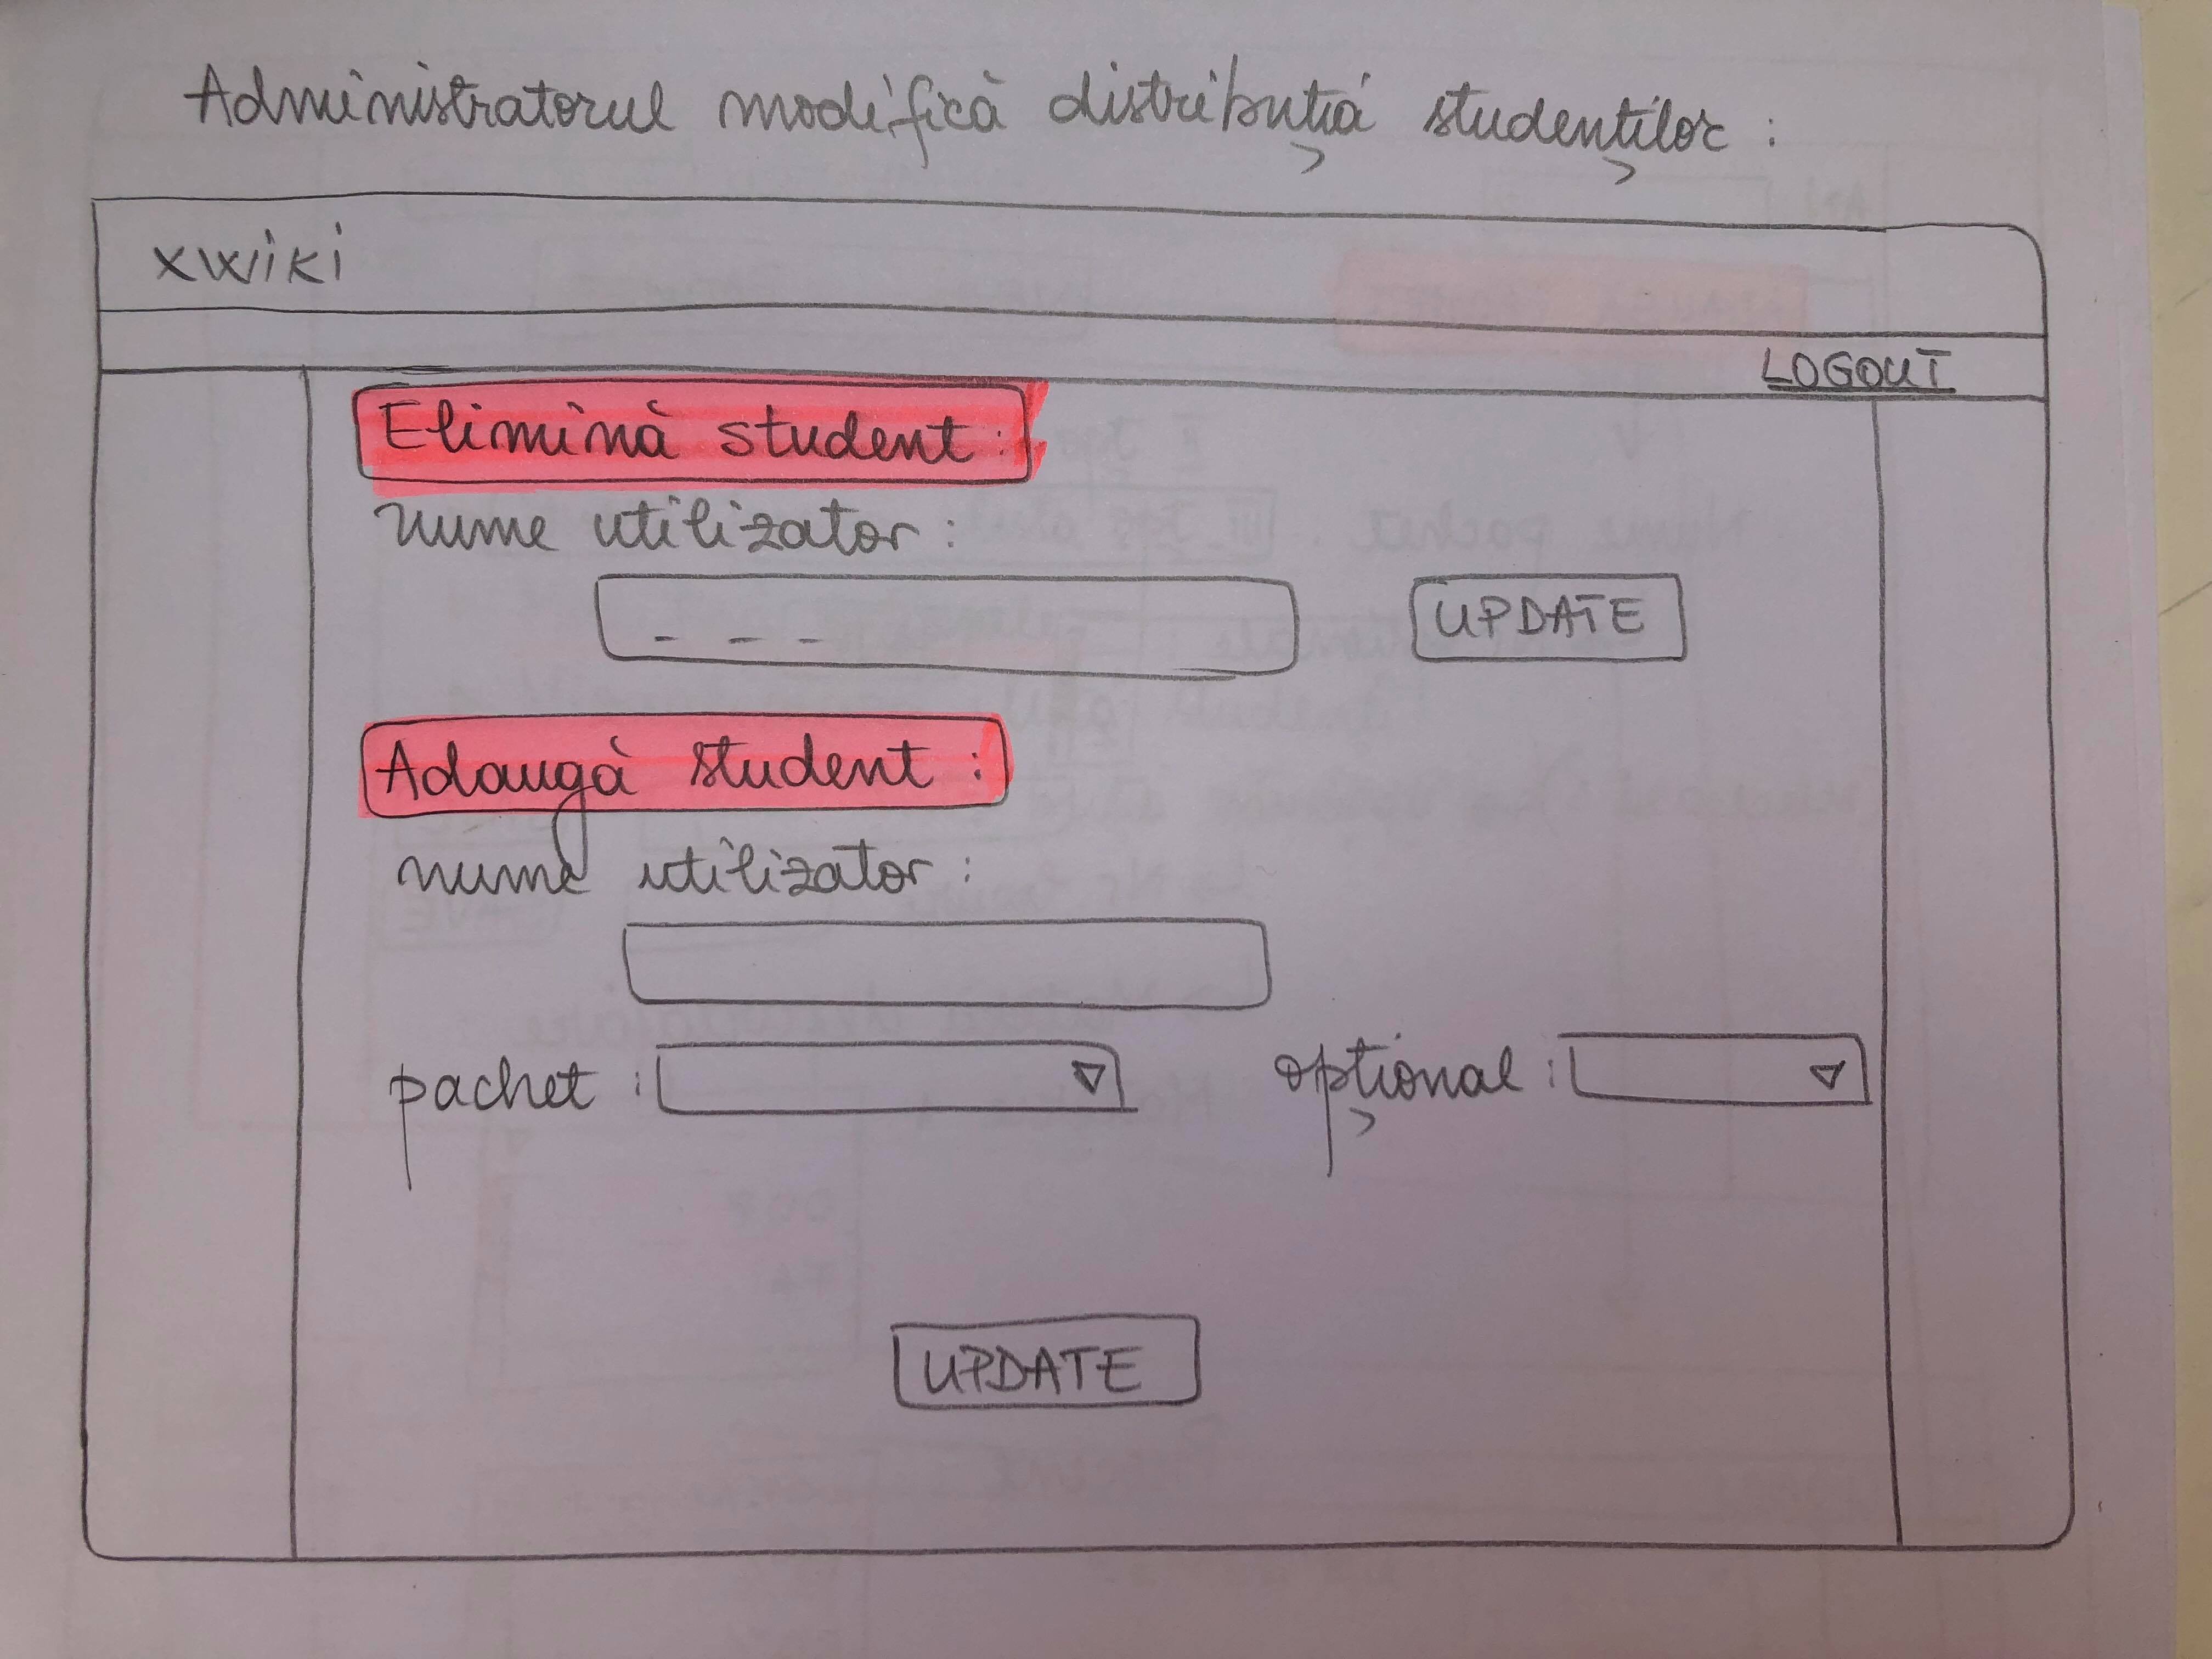 Administratorul modifică distribuția studenților :
xwiki
LOGOUT
Elimină student :
nume utilizator :
_ _ _
UPDATE
Adaugă student :
nume utilizator :
pachet :
opțional :
UPDATE